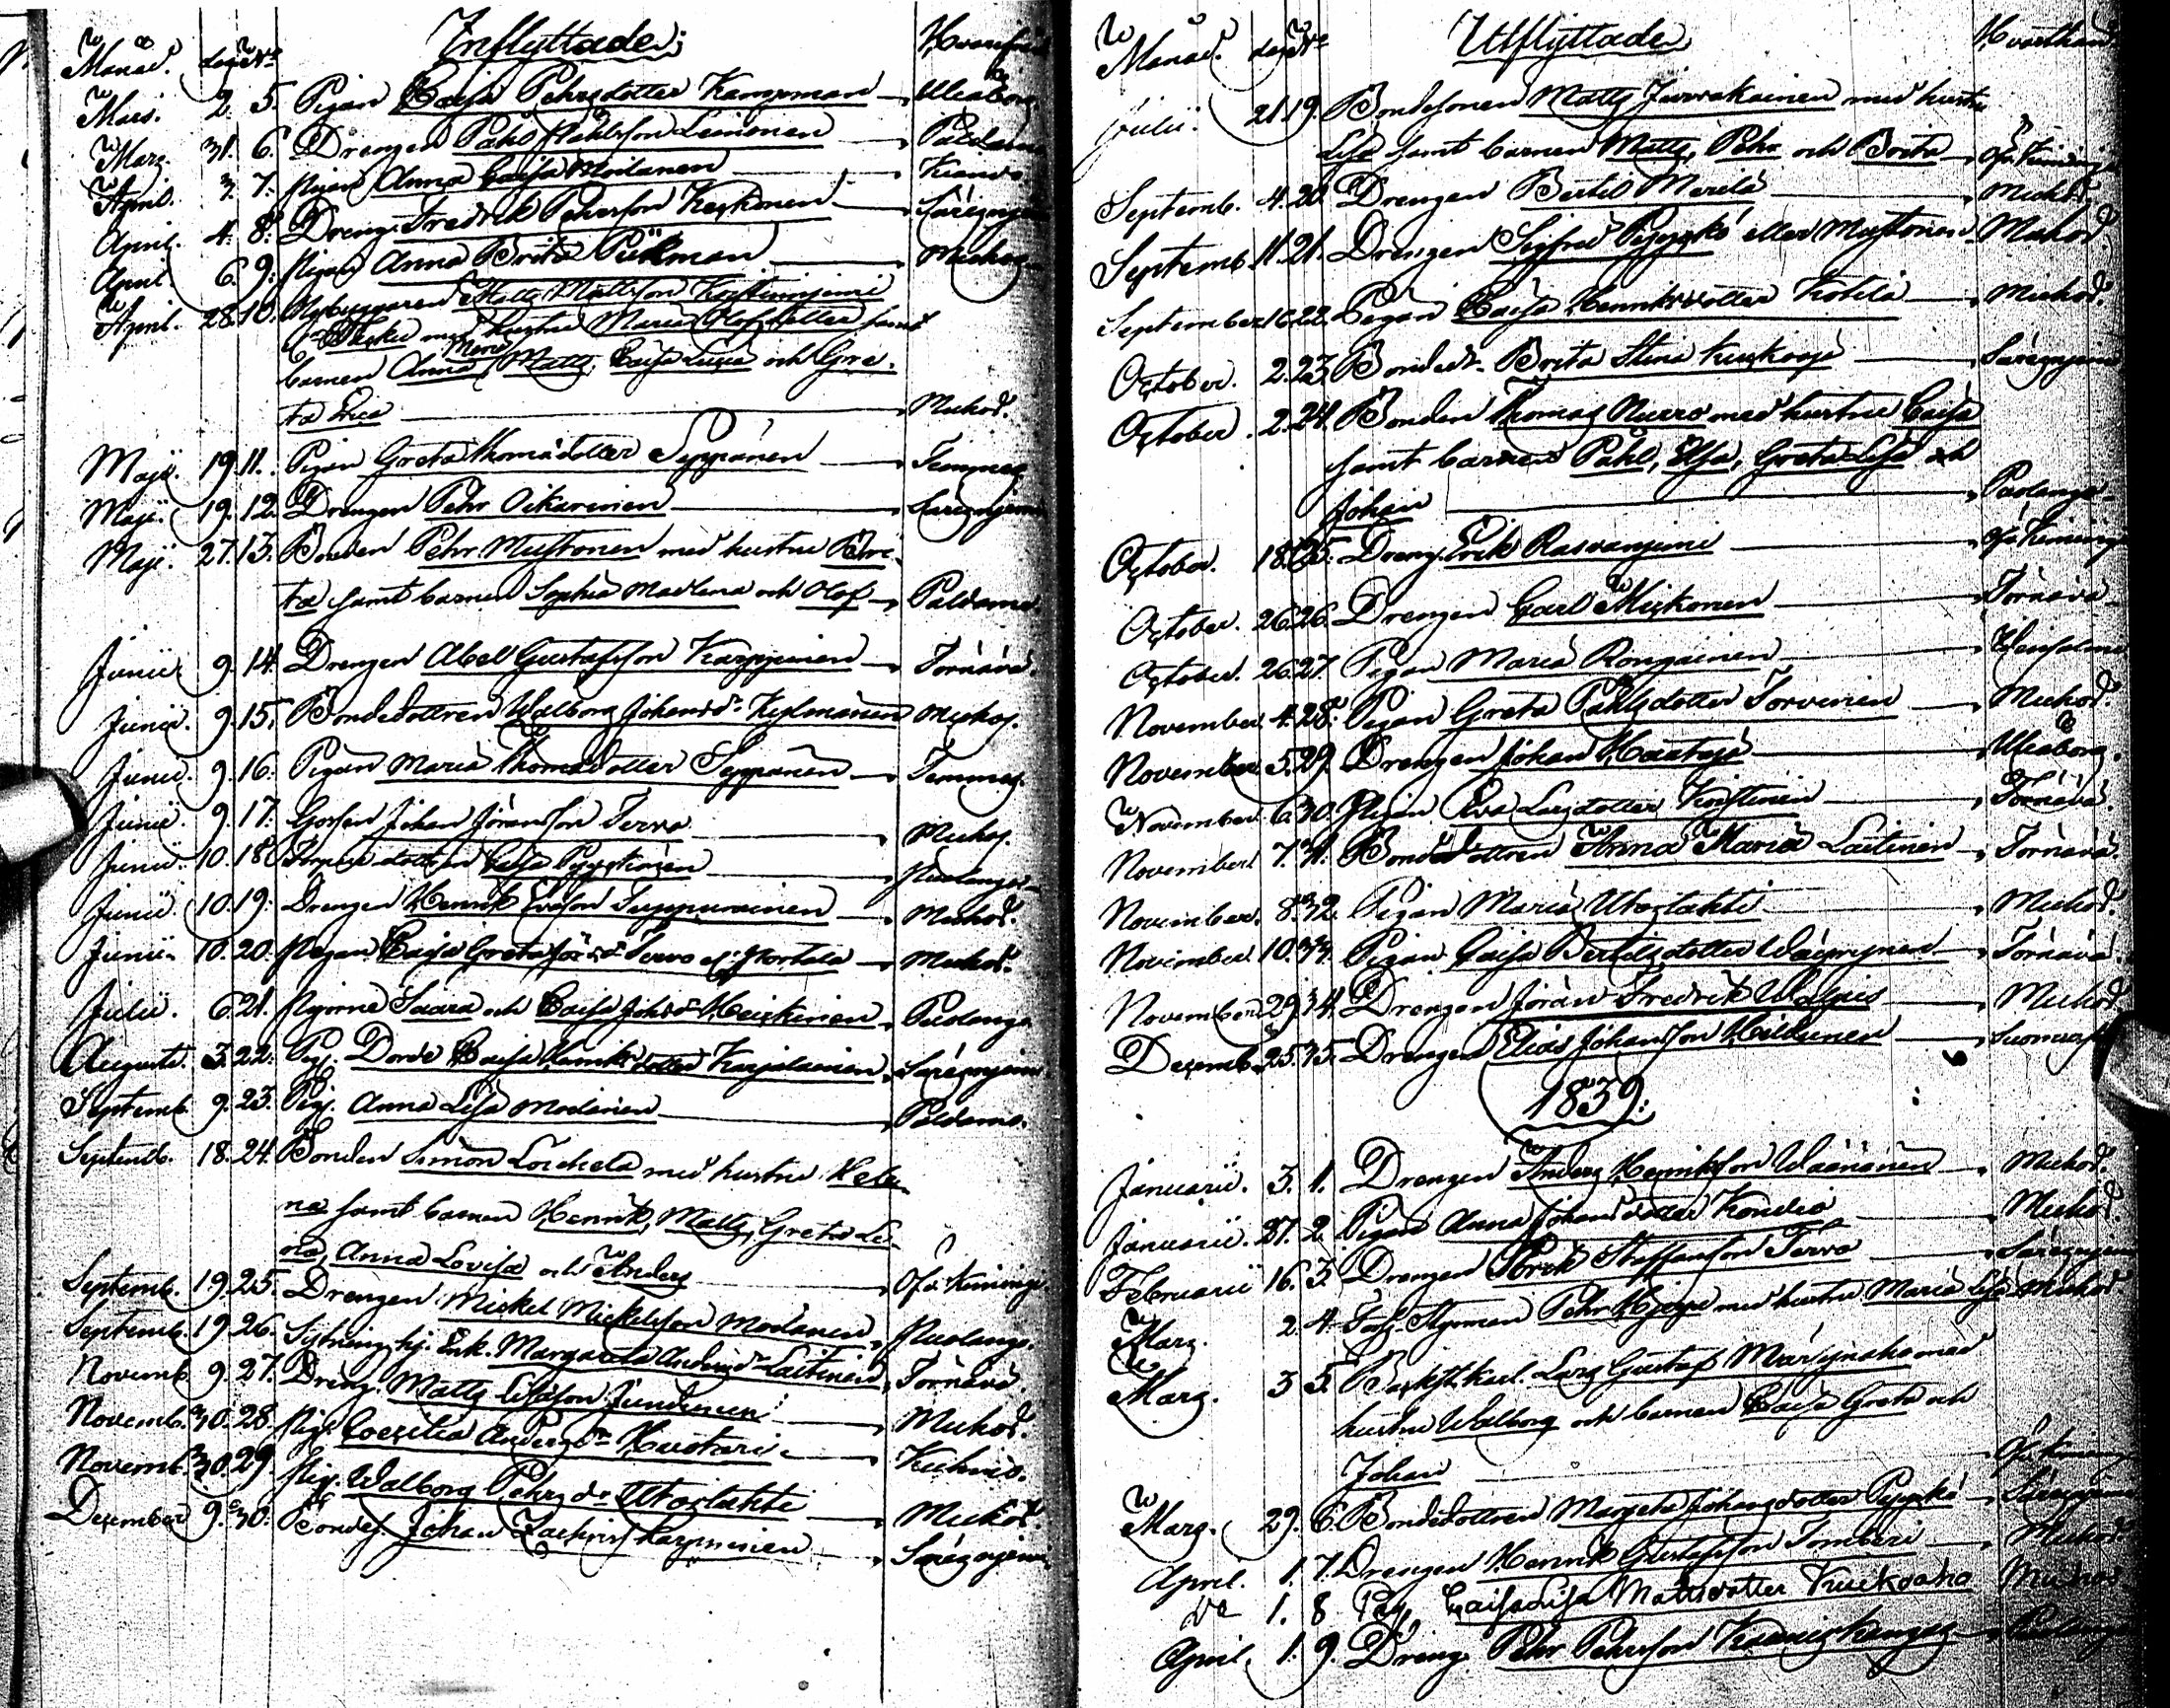 Månad. dag No Inflyttade; Hvarifrån
Mars. 2. 5. Pigan Caisa Pehrsdotter Kampman Uleåborg
Mars. 31. 6. Drengen Pahl Pahlsson Leinonen Paldamo
April. 3. 7. Pigan Anna Caisa Moilanen Kiando
April. 4. 8. Dreng. Fredrik Pehrsson Keskonen Säresniemi
April. 6. 9. Pigan Anna Brita Muhos
April. 28. 10. Nybyggaren Matts Mattsson Koistinniemi
med hustru Maria Olofsdotter samt
barnen Anna Maria, Matts, Caisa Lusa och Gre-
ta Erica Muhos.
Maji. 19. 11. Pigan Greta Thomædotter Seppänen Temmes
Maji. 19. 12. Drengen Pehr Oikarinen Säresniemi
Maji. 27. 13. Bonden Pehr Mustonen med hustru Bri-
ta samt barnen Sophia Madlena och Olof Paldamo.
Junii 9. 14. Drengen Abel Gustafsson Karppinen Törnävä.
Junii. 9. 15. Bondedottren Walborg Johansd:r Kylmänen Muhos.
Junii. 9. 16. Pigan Maria Thomædotter Seppänen Temmes.
Junii. 9. 17. Gossen Johan Jöransson Tervo Muhos.
Junii. 10. 18. Caisa
Junii. 10. 19. Drengen Henrik Ersson Tuppurainen Muhos.
Junii. 10. 20. Pigan Caisa Greta Tervo Muhos.
Julii. 6. 21. Pigorne Saara och Caisa Johsd:r Heiskinen Pudasjä
Augusti. 3. 22. Pig. Dorde Caisa Henriksdotter Karjalainen Säresniemi
Septemb. 9. 23. Pig. Anna Lisa Moilanen Paldamo.
Septemb. 18. 24. Bonden Simon med hustru Hele-
na samt barnen Henrik, Matts, Greta Le-
na, Anna Lovisa och Anders Öfv. Kiiminge
Septemb. 19. 25. Drengen Mickel Mickelsson Moilanen
Septemb. 19. 26. Enk. Margareta Andersd:r Laitinen Törnävä.
Novemb. 9. 27. Dreng. Matts Muhos.
Novemb. 30. 28. Pig. Coecilia Andersd:r Huotari Kuhmo.
Novemb. 30. 29. Pig. Walborg Pehrsd:r Utoslahti Muhos.
December 9. 30. Bondes. Johan Zachriss. Karppinen Säresniemi
Månad. dag No Utflyttade Hvarthän
Julii. 21. 19. Bondesonen Matts Juvakainen med hustru
Lisa samt barnen Matts, Pehr och Brita Öfv. Kiiminge
Septemb. 4. 20. Drengen Bertil Merilä Muhos
Septemb. 11. 21. Drengen Sigfred Pyykkö eller Mustonen Muhos
September 16. 22. Pigan Caisa Henriksdotter Kotila Muhos.
October. 2. 23. Bonded:r Brita Stina Kuskoja Säresniemi
October. 2. 24. Bonden Thomas Nurro med hustru Caisa
samt barnen Pahl, Elsa, Greta Lisa och
Johan
October. 18. 25. Dreng. Erik Rasvaniemi Öfv. Kiiminge
October. 26. 26. Drengen Carl Miskonen Törnävä
October. 26. 27. Pigan Maria Rongainen
November 4. 28. Pigan Greta Pahlsdotter Torvinen Muhos.
November 5. 29. Drengen Johan Haataja Uleåborg.
November 6. 30. Pigan Eva Larsdotter Koistinen Törnävä.
November 7. 31. Bondedottren Anna Maria Laitinen Törnävä.
November. 8. 32. Pigan Maria Utoslahti Muhos.
November. 10. 33. Pigan Caisa Bertilsdotter Väyrynen Törnävä.
November 29. 34. Drengen Jöran Fredrik Walgis Muhos
Decemb. 25. 35. Drengen Elias Johansson Heikkinen
1839:
Januarii. 3. 1. Drengen Anders Henriksson Wäänänen Muhos.
Januarii. 27. 2. Pigan Anna Johansdotter Kondio Muhos.
Februarii 16. 3. Drengen Erik Staffansson Tervo Säresniemi
Mars. 2. 4. Pehr med hustru Maria Lisa Muhos
Mars. 3. 5. Lars Gustaf med
hustru Walborg och barnen Caisa Greta och
Johan Öfv. Kiiminge
Mars. 29. 6. Bondedottren Margeta Johansdotter Pyykkö Säresniemi
April. 1. 7. Drengen Henrik Gustafsson Tomberi Muhos
D:o 1. 8. Pig. Caisa Lisa Mattsdotter Muhos
April. 1. 9. Dreng. Pehr Pehrsson